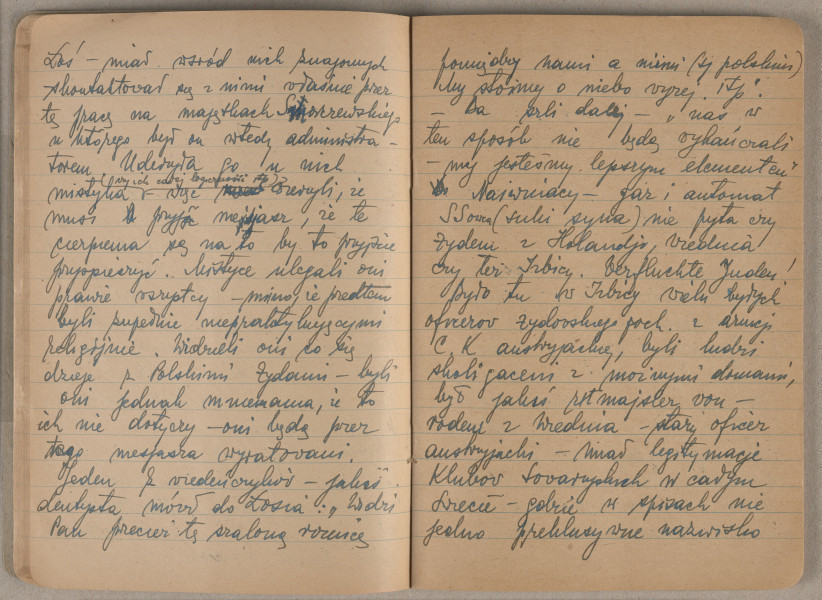 Łoś – miał wsród nich znajomych
skontaktował się z nimi właśnie przez
tę pracę na majątkach Skorzewskiego
u którego był on wtedy administra-
torem. Uderzyła go u nich
mistyka
więc wierzyli, że
musi przyjść mesjasz, że te
cierpienia są na to by to przyjście
przyspieszyć. Mistyce ulegali oni
prawie wszyscy – mimo, że przedtem
byli zupełnie niepraktykującymi
religijnie. Widzieli oni co się
dzieje z Polskimi Żydami – byli
oni jednak mniemania, że to
ich nie dotyczy – oni będą przez
tego mesjasza wyratowani.
Jeden z wiedeńczyków – jakiś
dentysta mówił do Łosia: „Widzi
Pan przecież tą szaloną różnicę
pomiędzy nami a nimi (tj polskimi)
My stoimy o niebo wyżej. itp".
– Ba szli dalej – „nas w
ten sposób nie będą wykańczali
– my jesteśmy lepszym elementem"
Naiwniacy – gaz i automat
SSowca (suki syna) nie pyta czy
żydem z Holandji, Wiednia
czy też Izbicy. Verfluchte Juden!
Było tu w Izbicy wielu byłych
oficerów żydowskiego poch. z armji
C. K. austryjackiej, byli ludzi
skoligaceni z możnymi domami,
był jakiś rotmajster von –
rodem z Wiednia – stary oficer
austryjacki – miał legitymacje
Klubów Towarzyskich w całym
świecie – gdzie w spisach nie
jedno nazwisko